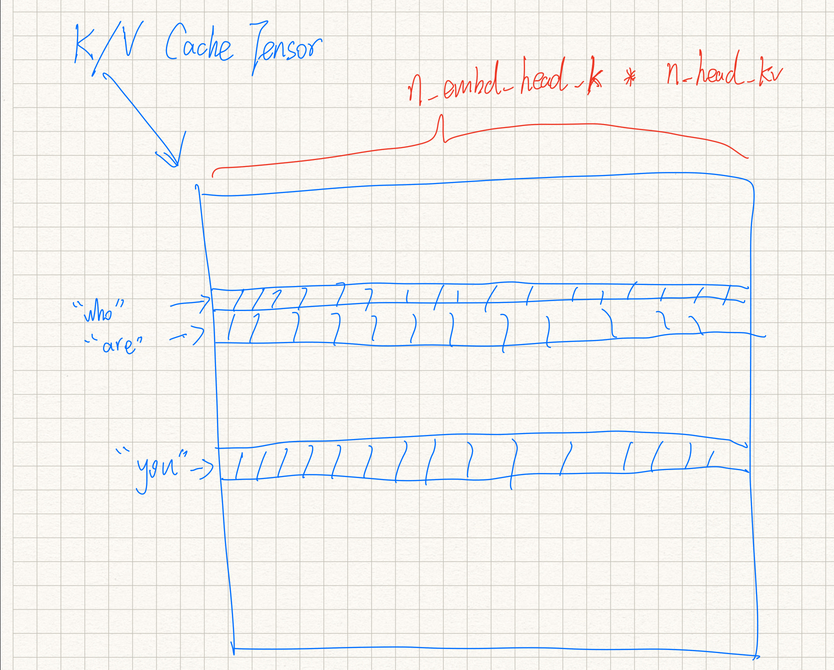 K/V Cache Tensor
n_embd_head_k * n_head_kv
"who"
"are"
"you"